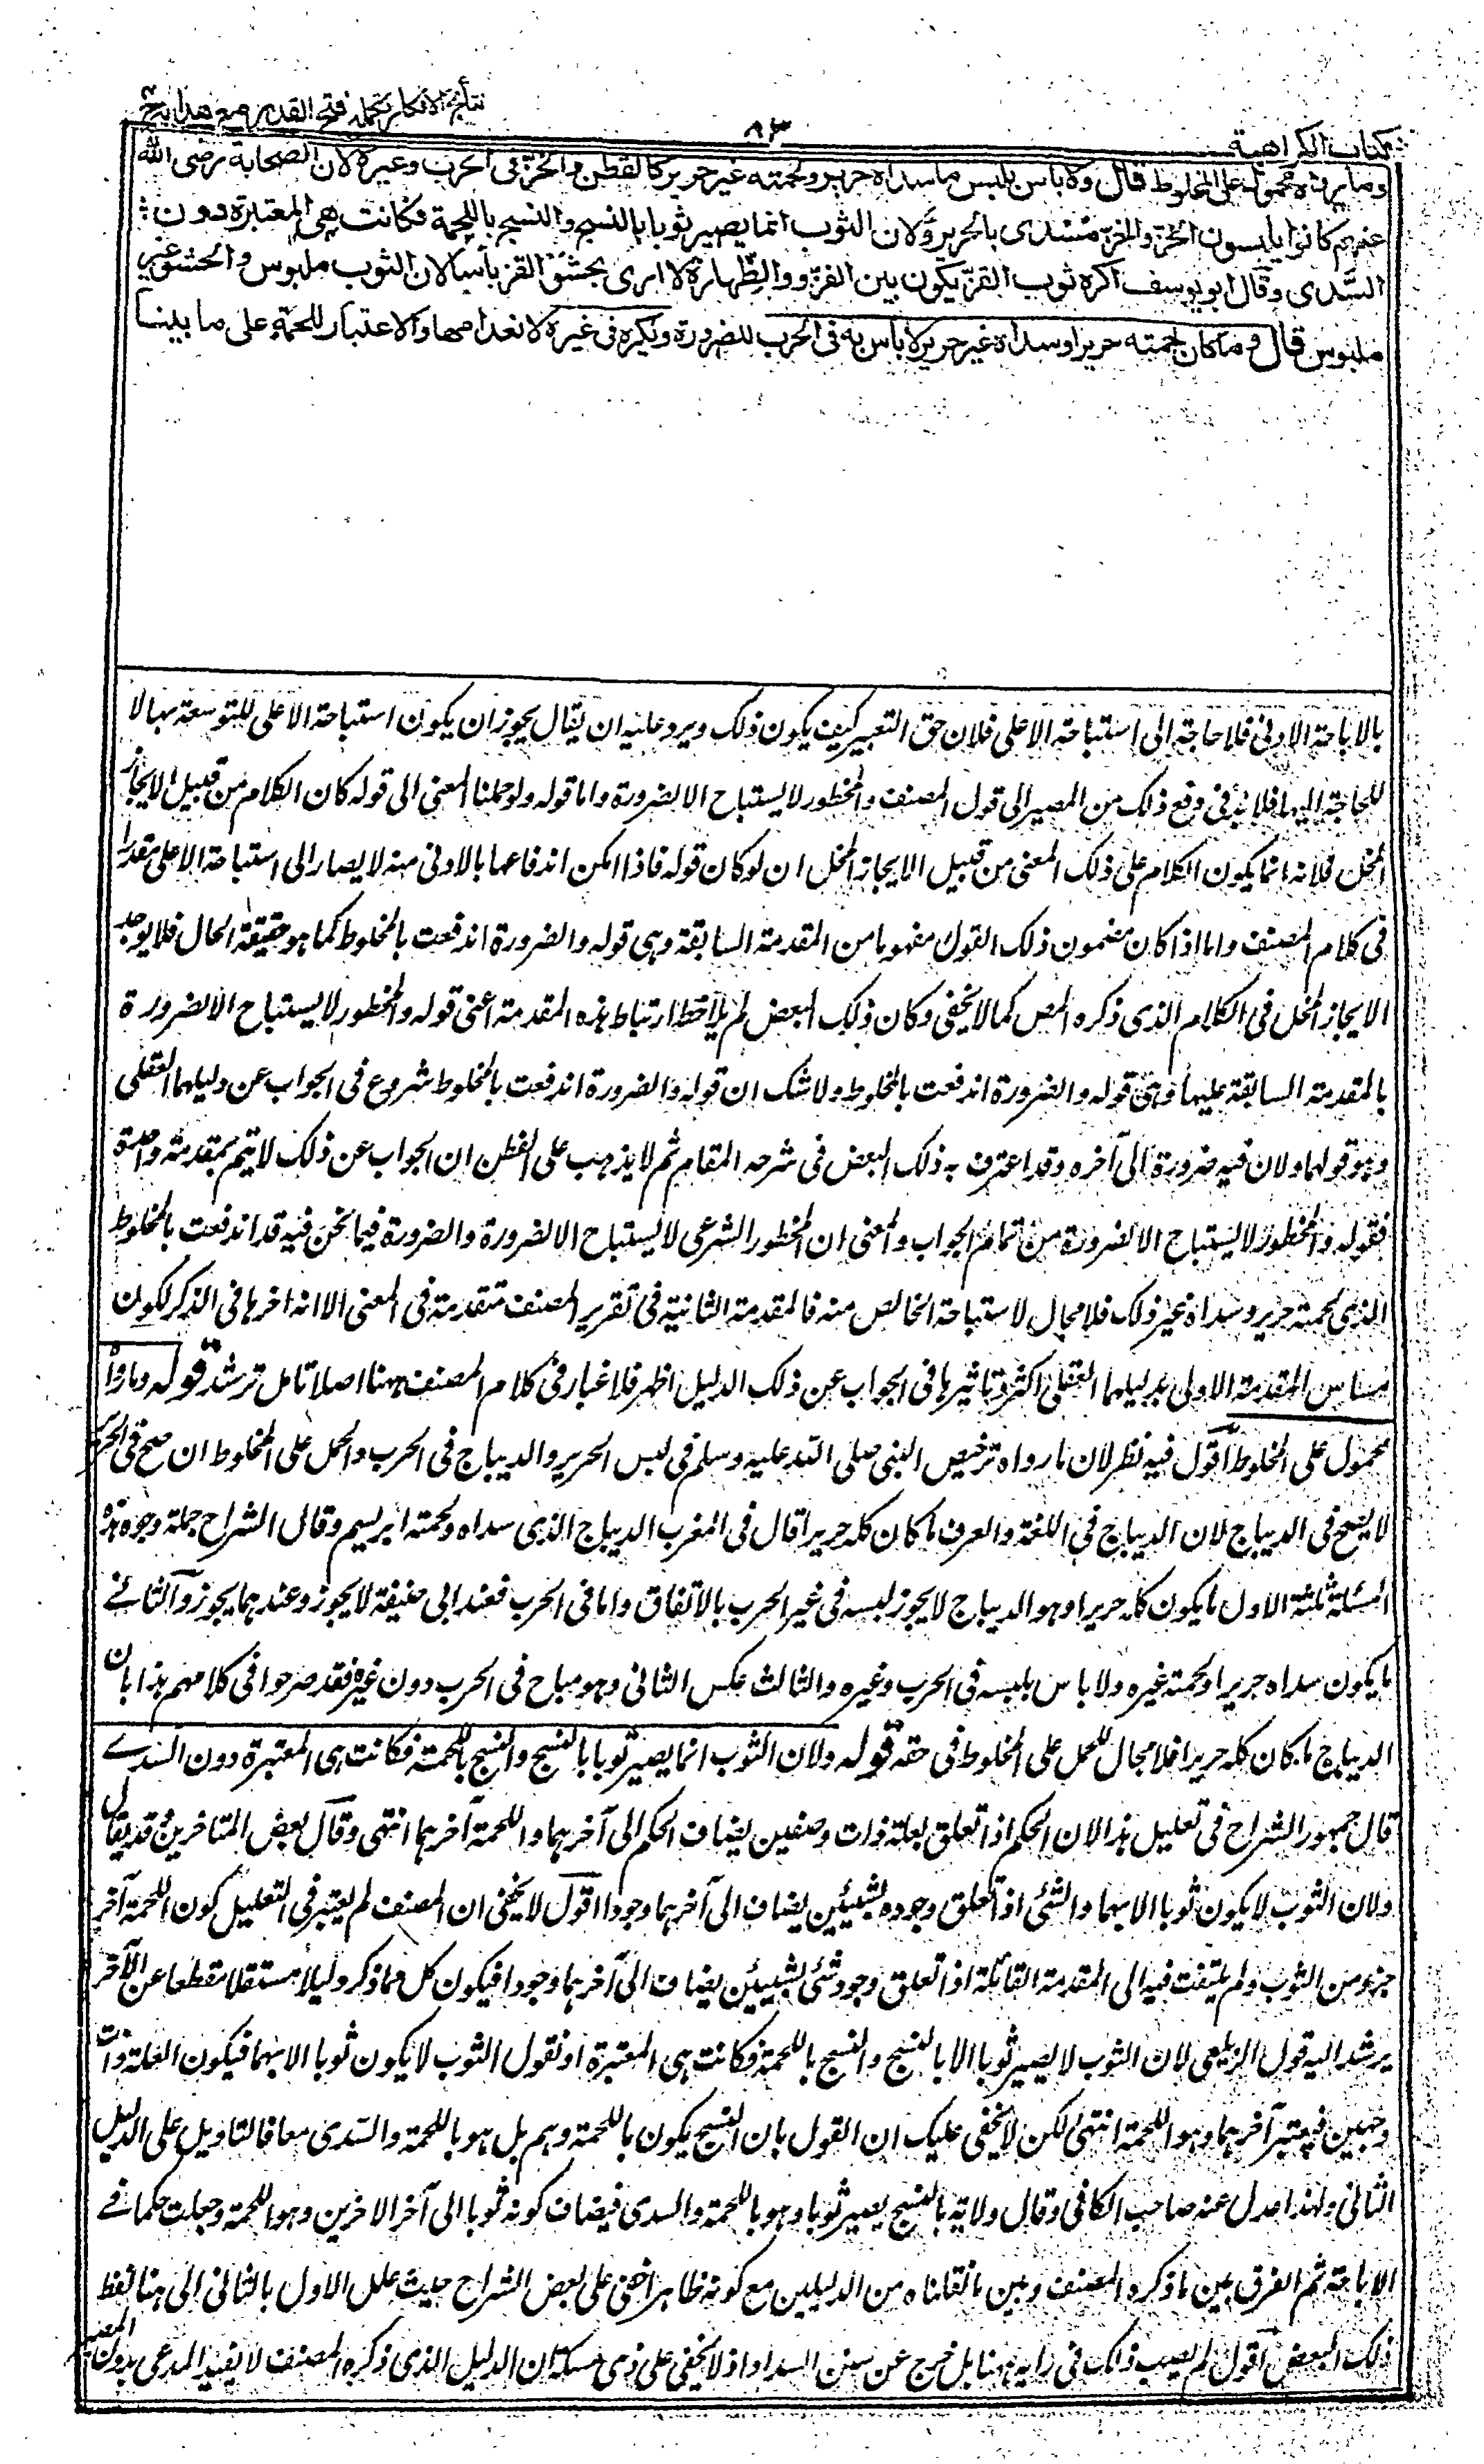 كتاب الكراهية
٨٣
نتائج الافكار تكملة فتح القدير مع هداية ج
وما رواه محمول على المخلوط قال ولا باس بلبس ما سداه حرير ولحمته غير حرير كالقطن والخز فى الحرب وغيره لان الصحابة رضى الله
عنهم كانوا يلبسون الخز والخز مسدى بالحرير ولان الثوب انما يصير ثوبا بالنسج والنسج باللحمة فكانت هى المعتبرة دون
السدى وقال ابو يوسف اكره ثوب القز يكون بين الفرو والظهارة ولا ارى بحشو القز باسا لان الثوب ملبوس والحشو غير
ملبوس قال وما كان لحمته حريرا وسداه غير حرير لا باس به فى الحرب للضرورة ويكره فى غيره لانعدامها والاعتبار للحمة على ما بينا
بالاباحة الادنى فلا حاجة الى استباحة الاعلى فلان حق التعبير كيف يكون ذلك ويرد عليه ان يقال يجوز ان يكون استباحة الاعلى للتوسعة بها لا
للحاجة اليها فلا بد فى دفع ذلك من المصير الى قول المصنف والمحظور لا يستباح الا لضرورة واما قوله ولو حملنا المعنى الى قوله كان الكلام من قبيل الايجاز
المخل فلانه انما يكون الكلام على ذلك المعنى من قبيل الايجاز المخل ان لو كان قوله فاذا امكن اندفاعها بالادنى منه لا يصار الى استباحة الاعلى مقدرا
فى كلام المصنف واما اذا كان مضمون ذلك القول مفهوما من المقدمة السابقة وهى قوله والضرورة اندفعت بالمخلوط كما هو حقيقة الحال فلا يوجد
الايجاز المخل فى الكلام الذى ذكره المص كما لا يخفى وكان ذلك البعض لم يلاحظ ارتباط هذه المقدمة اعنى قوله والمحظور لا يستباح الا لضرورة
بالمقدمة السابقة عليها وهى قوله والضرورة اندفعت بالمخلوط ولا شك ان قوله والضرورة اندفعت بالمخلوط شروع فى الجواب عن دليلهما العقلى
وهو قولهما ولان فيه ضرورة الى آخره وقد اعترف به ذلك البعض فى شرحه المقام ثم لا يذهب على الفطن ان الجواب عن ذلك لا يتم بمقدمة واحدة
فقوله والمحظور لا يستباح الا لضرورة من تمام الجواب والمعنى ان المحظور الشرعى لا يستباح الا لضرورة والضرورة فيما نحن فيه قد اندفعت بالمخلوط
الذى لحمته حرير وسداه غير ذلك فلا مجال لاستباحة الخالص منه فالمقدمة الثانية فى تقرير المصنف متقدمة فى المعنى الا انه اخرها فى الذكر لكون
مساس المقدمة الاولى بدليلهما العقلى اكثر وتاثيرها فى الجواب عن ذلك الدليل اظهر فلا غبار فى كلام المصنف ههنا اصلا تامل ترشد قوله وما رواه
محمول على المخلوط اقول فيه نظر لان ما رواه ترخيص النبى صلى الله عليه وسلم فى لبس الحرير والديباج فى الحرب والحمل على المخلوط ان صح فى الحرير
لا يصح فى الديباج لان الديباج فى اللغة والعرف ما كان كله حريرا قال فى المغرب الديباج الذى سداه ولحمته ابريسم وقال الشراح جملة وجوه هذه
المسئلة ثلثة الاول ما يكون كله حريرا وهو الديباج لا يجوز لبسه فى غير الحرب بالاتفاق واما فى الحرب فعند ابى حنيفة لا يجوز وعندهما يجوز والثانى
ما يكون سداه حريرا ولحمته غيره ولا باس بلبسه فى الحرب وغيره والثالث عكس الثانى وهو مباح فى الحرب دون غيره فقد صرحوا فى كلامهم هذا بان
الديباج ما كان كله حريرا فلا مجال للحمل على المخلوط فى حقه قوله ولان الثوب انما يصير ثوبا بالنسج والنسج باللحمة فكانت هى المعتبرة دون السدى
قال جمهور الشراح فى تعليل هذا لان الحكم اذا تعلق بعلة ذات وصفين يضاف الحكم الى آخرهما واللحمة آخرهما انتهى وقال بعض المتاخرين قد يقال
ولان الثوب لا يكون ثوبا الا بهما والشئ اذا تعلق وجوده بشيئين يضاف الى آخرهما وجودا اقول لا يخفى ان المصنف لم يعتبر فى التعليل كون اللحمة آخر
جزء من الثوب ولم يلتفت فيه الى المقدمة القائلة اذا تعلق وجود شئ بشيئين يضاف الى آخرهما وجودا فيكون كل مما ذكر دليلا مستقلا منقطعا عن الآخر
يرشد اليه قول الزيلعى لان الثوب لا يصير ثوبا الا بالنسج والنسج باللحمة فكانت هى المعتبرة او نقول الثوب لا يكون ثوبا الا بهما فيكون العلة ذات
وجهين فيعتبر آخرهما وهو اللحمة انتهى لكن لا يخفى عليك ان القول بان النسج يكون باللحمة وهم بل هو باللحمة والسدى معا فالتاويل على الدليل
الثانى ولهذا عدل عنه صاحب الكافى وقال ولانه بالنسج يصير ثوبا وهو باللحمة والسدى فيضاف كونه ثوبا الى آخر الاخرين وهو اللحمة وجعلت حكما فى
الاباحة ثم الفرق بين ما ذكره المصنف وبين ما نقلناه من الدليلين مع كونه ظاهرا خفى على بعض الشراح حيث علل الاول بالثانى الى هنا لفظ
ذلك البعض اقول لم يصب ذلك فى رايه ههنا بل خرج عن سنن السداد اذ لا يخفى على ذى مسكة ان الدليل الذى ذكره المصنف لا يفيد المدعى بدون المصير